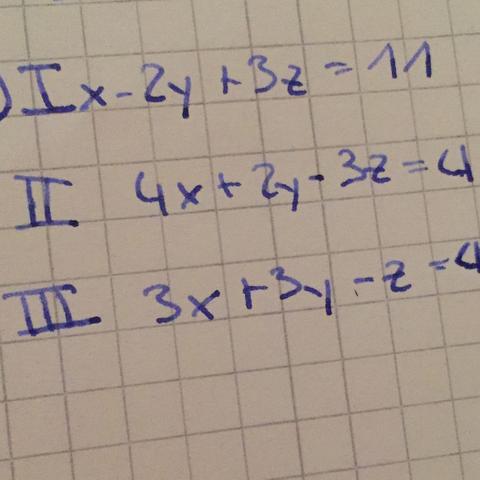 ) I x - 2y + 3z = 11
II 4x + 2y - 3z = 4
III 3x + 3y - z = 4